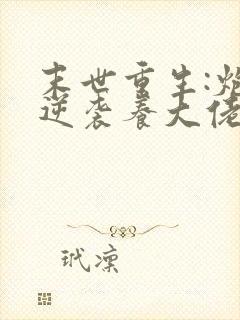 末世重生:炮
逆袭养大佬
玳凛